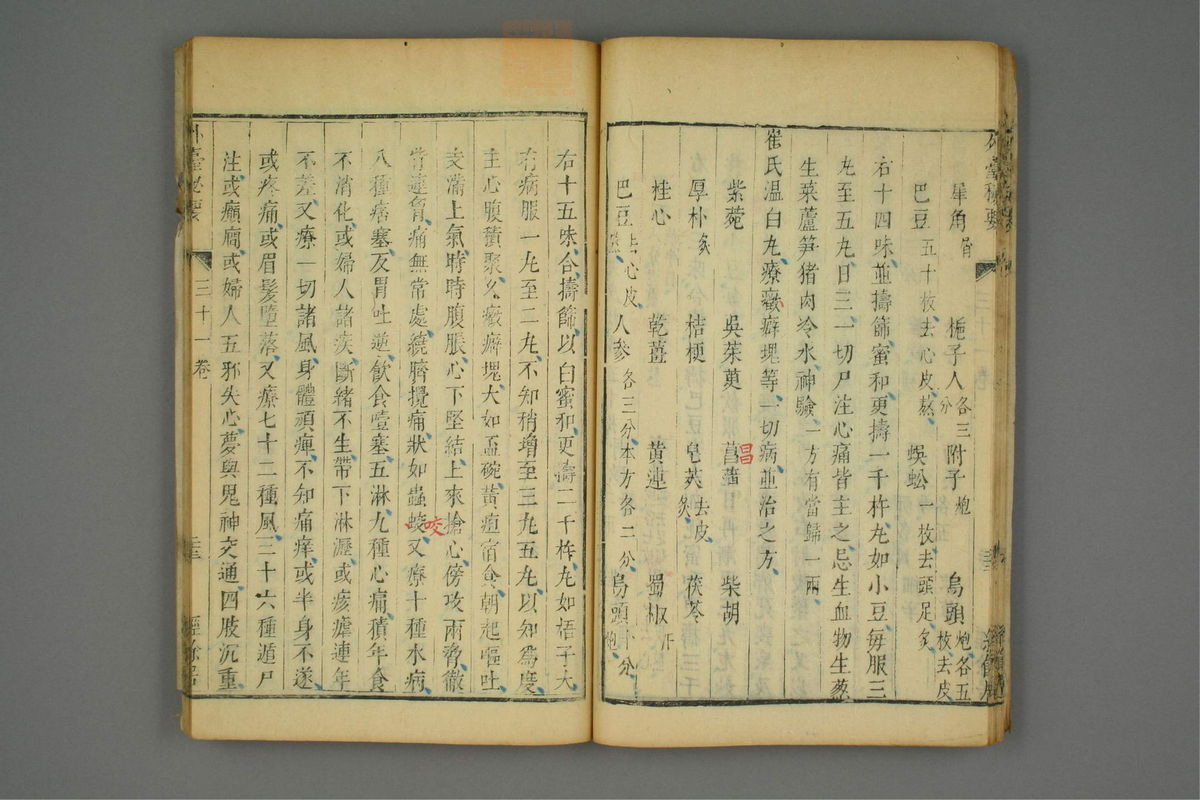 犀角屑 梔子人各三分 附子炮 烏頭炮各五枚去皮
巴豆五十枚去心皮熬 蜈蚣一枚去頭足炙
右十四味並擣篩蜜和更擣一千杵丸如小豆每服三
丸至五丸日三一切尸注心痛皆主之忌生血物生葱
生菜蘆笋猪肉冷水神驗一方有當歸一兩
崔氏温白丸療癥癖塊等一切病並治之方
紫菀 吳茱萸 菖蒲 柴胡
昌
厚朴炙 桔梗 皂莢去皮炙 茯苓
桂心 乾薑 黃連 蜀椒汗
巴豆去心皮熬 人參各三分本方各二分 烏頭十分炮
右十五味合擣篩以白蜜和更擣二千杵丸如梧子大
有病服一丸至二丸不知稍增至三丸五丸以知爲度
主心腹積聚久癥癖塊大如盃碗黃疸宿食朝起嘔吐
支滿上氣時時腹脹心下堅結上來搶心傍攻兩脅徹
背連胷痛無常處繞臍攪痛狀如蟲蛟又療十種水病
咬
八種痞塞反胃吐逆飲食噎塞五淋九種心痛積年食
不消化或婦人諸疾斷緒不生帶下淋瀝或痎瘧連年
不差又療一切諸風身體頑痺不知痛痒或半身不遂
或疼痛或眉髮墮落又療七十二種風三十六種遁尸
注或癲癇或婦人五邪失心夢與鬼神交通四肢沉重
外臺秘要 三十一卷 三三 經餘居